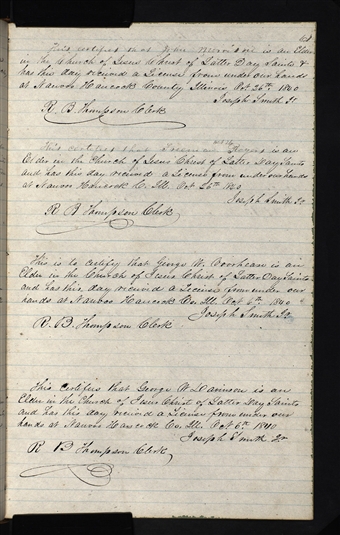 This certifies that is an Elder
in the Church of Jesus Christ of Latter Day Saints &
has this day received a License from under our hands
at Nauvoo Hancock County Illinois Oct 26th 1840
Joseph Smith Jr
R. B. Thompson Clerk
This certifies that is an
Elder in the Church of Jesus Christ of Latter Day Saints
and has this day received a License from under our hands
at Nauvoo Hancock Co. Ill. Oct 26th 1840
Joseph Smith Jr
R B Thompson Clerk
This is to certify that George W. Voorhease is an
Elder in the Church of Jesus Christ of Latter Day Saints
and has this day received a License from under our
hands at Nauvoo Hancock Co. Ill. Oct 6th 1840
Joseph Smith Jr
R. B. Thompson Clerk
This certifies that George W is an
Elder in the Church of Jesus Christ of Latter Day Saints
and has this day received a License from under our
hands at Nauvoo Hancock Co. Ill. Oct 6th 1840
Joseph Smith Jr
R B Thompson Clerk